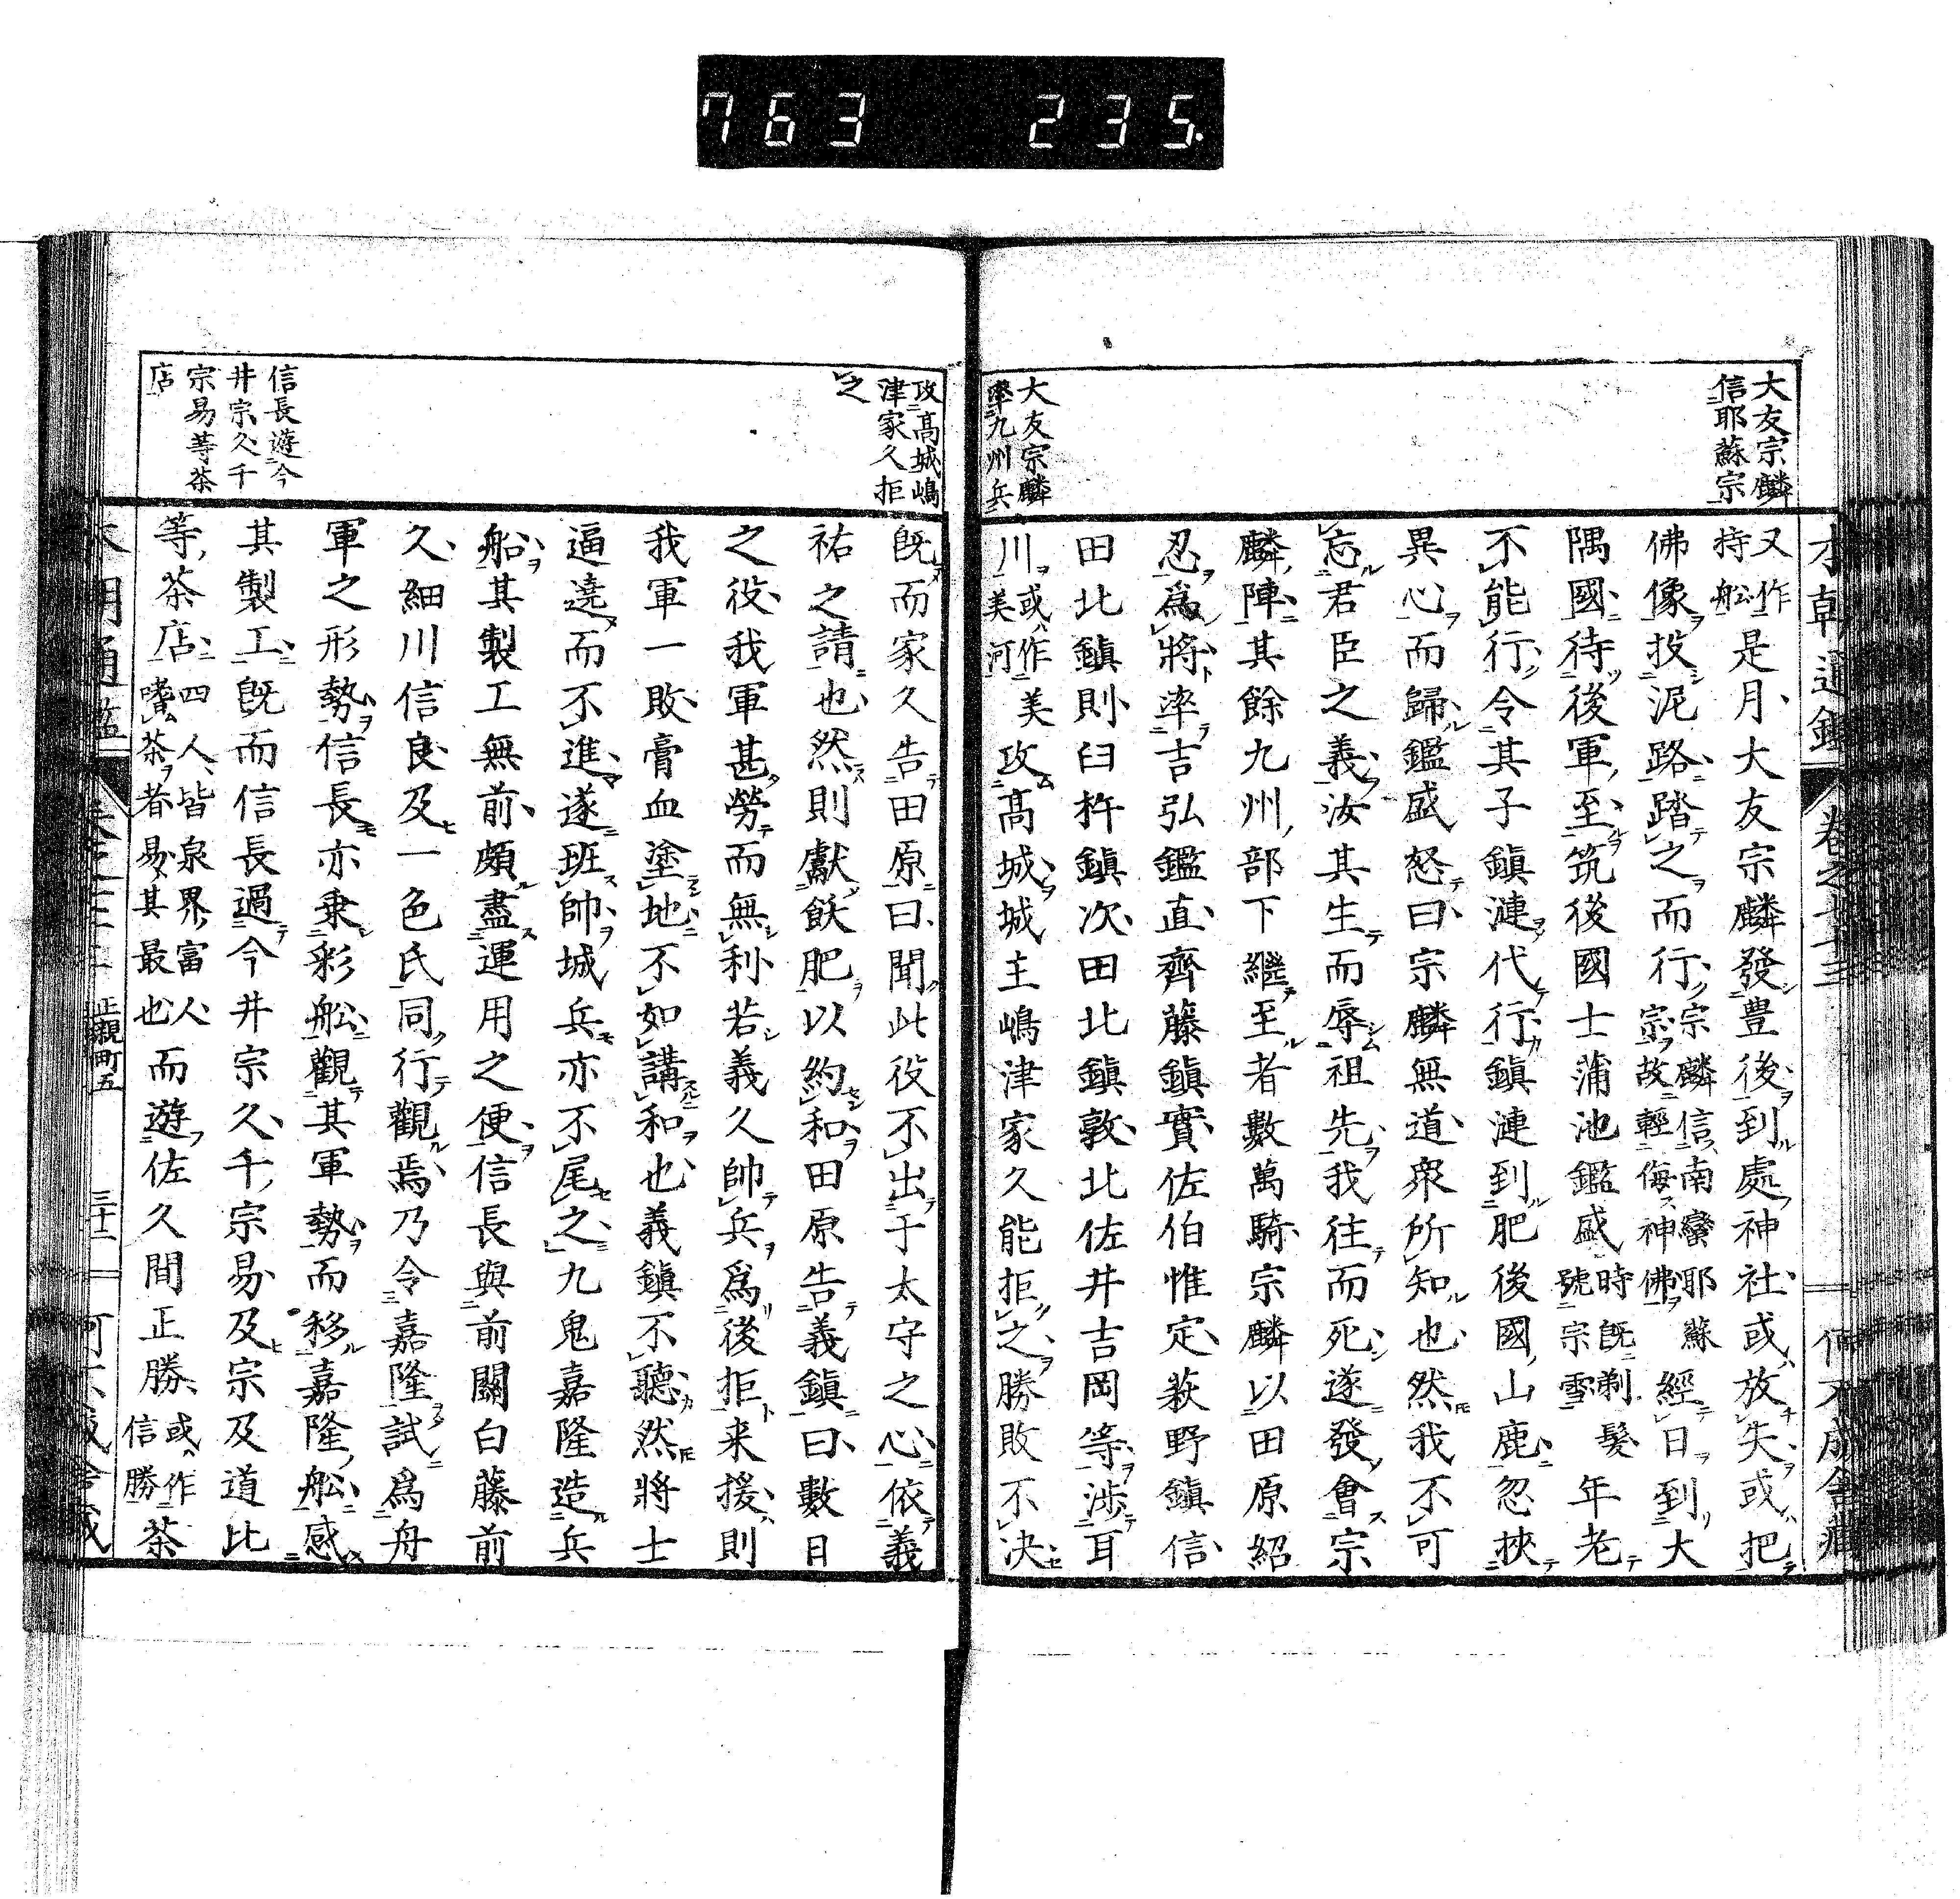 763 235.
大友宗麟
信耶蘇宗
大友宗麟
率九州兵
又作
持舩
是月大友宗麟發豊後到處神社或放失或把
佛像投泥路踏之而行
宗麟信南蠻耶蘇
宗故輕侮神佛
經日到大
隅國待後軍至筑後國士蒲池鑑盛
時既剃髮
號宗雪
年老
不能行令其子鎮漣代行鎮漣到肥後國山鹿忽挾
異心而歸鑑盛怒曰宗麟無道衆所知也然我不可
忘君臣之義汝其生而辱祖先我往而死遂發會宗
麟陣其餘九州部下繼至者數萬騎宗麟以田原紹
忍為將率吉弘鑑直齊藤鎮實佐伯惟定萩野鎮信
田北鎮則臼杵鎮次田北鎮敦北佐井吉岡等渉耳
川
或作美
美河
攻髙城城主嶋津家久能拒之勝敗不决
攻髙城嶋
津家久拒
之
信長遊今
井宗久千
宗易等茶
店
既而家久告田原曰聞此役不出于太守之心依義
祐之請也然則獻飫肥以約和田原告義鎮曰數日
之役我軍甚勞而無利若義久帥兵為後拒来援則
我軍一敗膏血塗地不如講和也義鎮不聽然將士
逼遶而不進遂班帥城兵亦不尾之九鬼嘉隆造兵
船其製工無前頗盡運用之便信長與前關白藤前
久細川信良及一色氏同行觀焉乃令嘉隆試為舟
軍之形勢信長亦乗彩舩觀其軍勢而移嘉隆舩感
其製工既而信長過今井宗久千宗易及宗及道比
等茶店
四人皆泉界富人
嗜茶者易其最也
而遊佐久間正勝
或作
信勝
茶